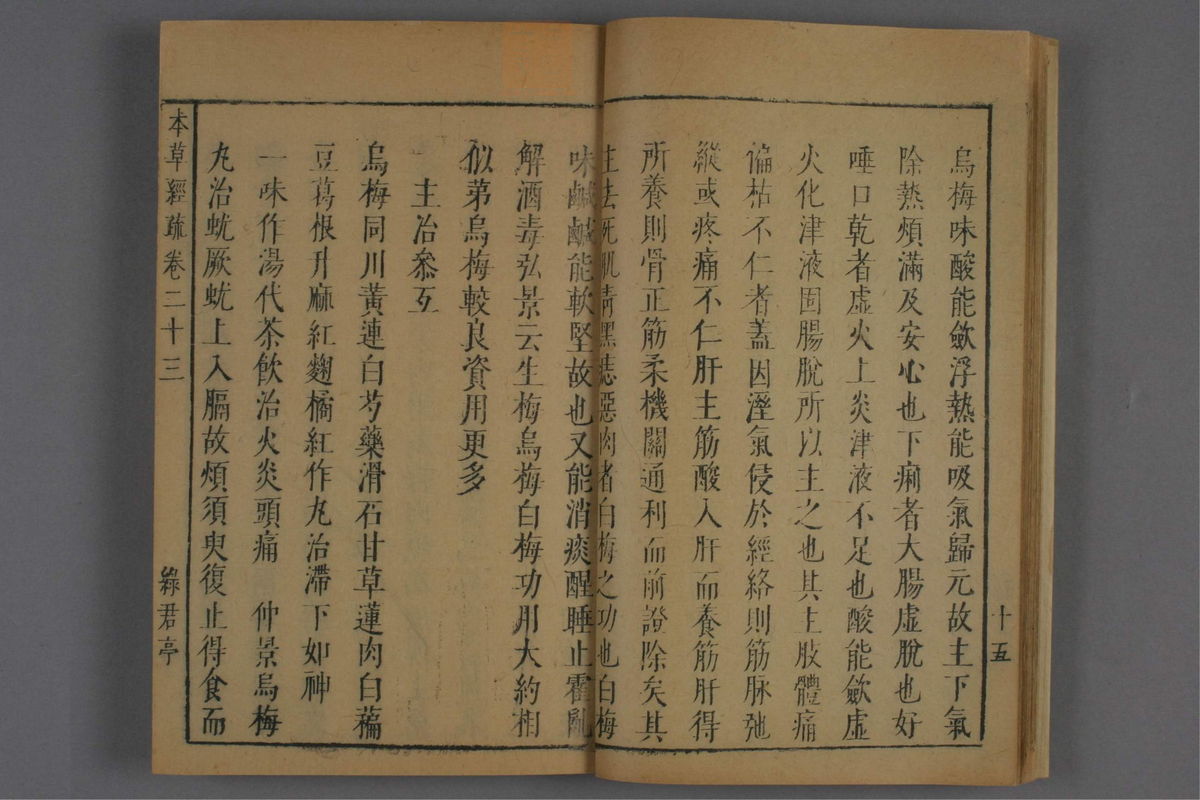 十五
烏梅味酸能斂浮熱能吸氣歸元故主下氣
除熱煩滿及安心也下痢者大腸虛脫也好
唾口乾者虛火上炎津液不足也酸能斂虛
火化津液固腸脫所以主之也其主肢體痛
偏枯不仁者蓋因溼氣侵於經絡則筋脉弛
縱或疼痛不仁肝主筋酸入肝而養筋肝得
所養則骨正筋柔機關通利而前證除矣其
主去死肌靑黑痣惡肉者白梅之功也白梅
味鹹鹹能軟堅故也又能消痰醒睡止霍亂
解酒毒弘景云生梅烏梅白梅功用大約相
似第烏梅較良資用更多
主治叅互
烏梅同川黃連白芍藥滑石甘草蓮肉白藊
豆葛根升麻紅麯橘紅作丸治滯下如神
一味作湯代茶飮治火炎頭痛 仲景烏梅
丸治蚘厥蚘上入膈故煩須臾復止得食而
本草經疏卷二十三
綠君亭